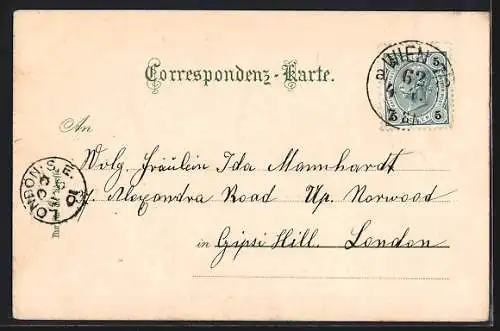 Correspondenz-Karte.
WIEN
62
5 5
An
Wolg. Fräulein Ida Mannhardt
Alexandra Road Up. Norwood
in Gipsi Hill. London
LONDON. S.E.